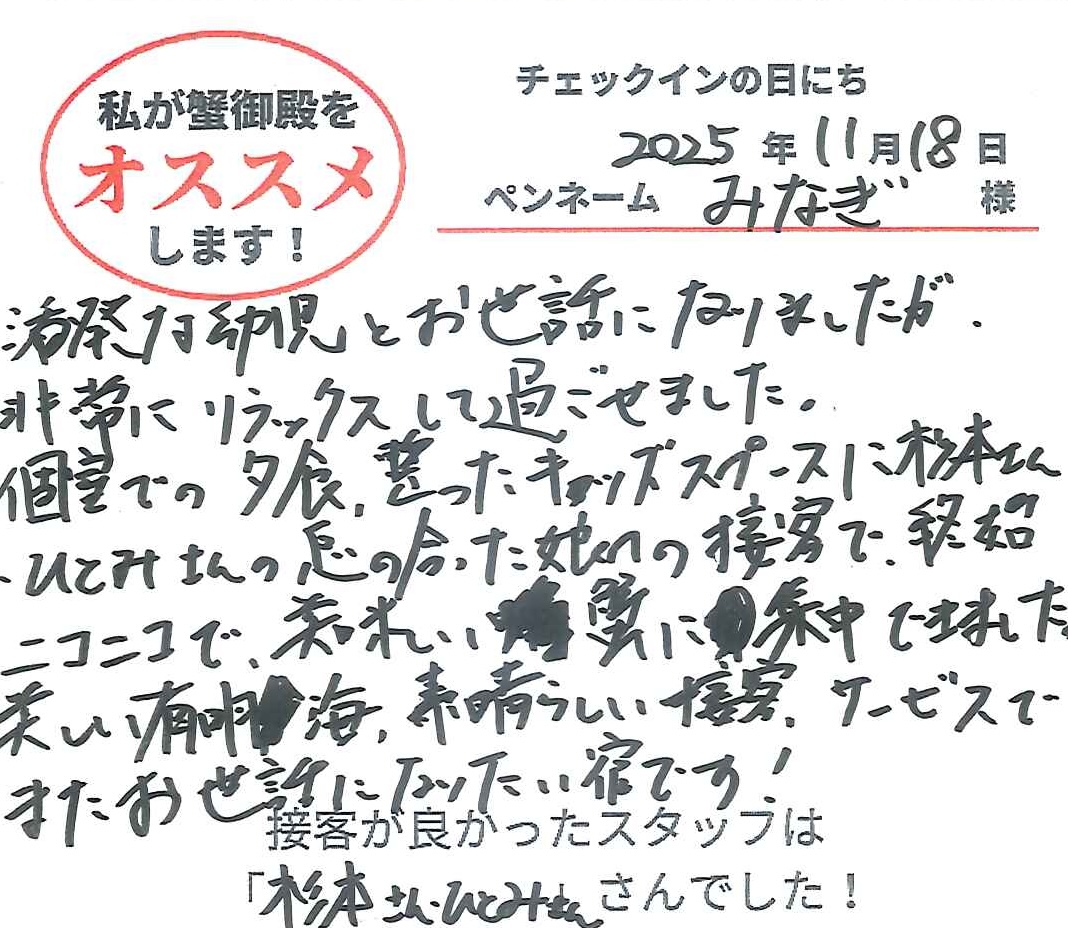 私が蟹御殿を
オススメ
します！
チェックインの日にち
2025年11月18日
ペンネーム みなぎ 様
活発な幼児とお世話になりましたが、
非常にリラックスして過ごせました。
個室での夕食、整ったキッズスペースに杉本さん
、ひとみさんの息の合った始めの接客で、終始
ニコニコで、美味しい蟹に集中できました
美しい有明海、素晴らしい接客、サービスで
またお世話になりたい宿です！
接客が良かったスタッフは
「杉本さん・ひとみさん」さんでした！